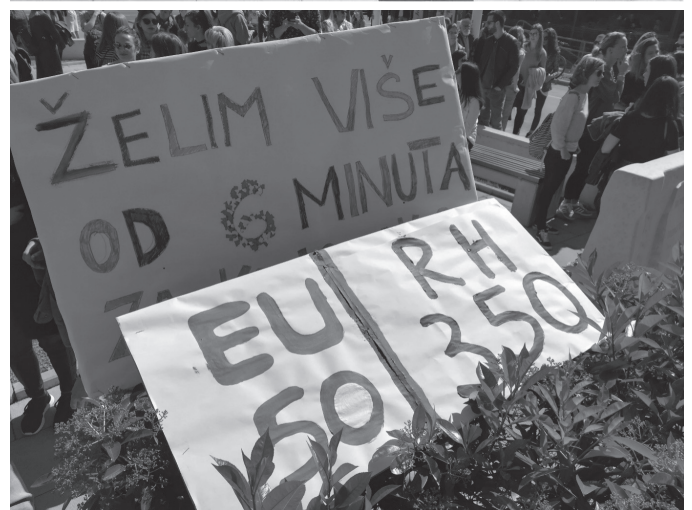 ŽELIM VIŠE
OD 6 MINUTA
ZA
EU
50
RH
350